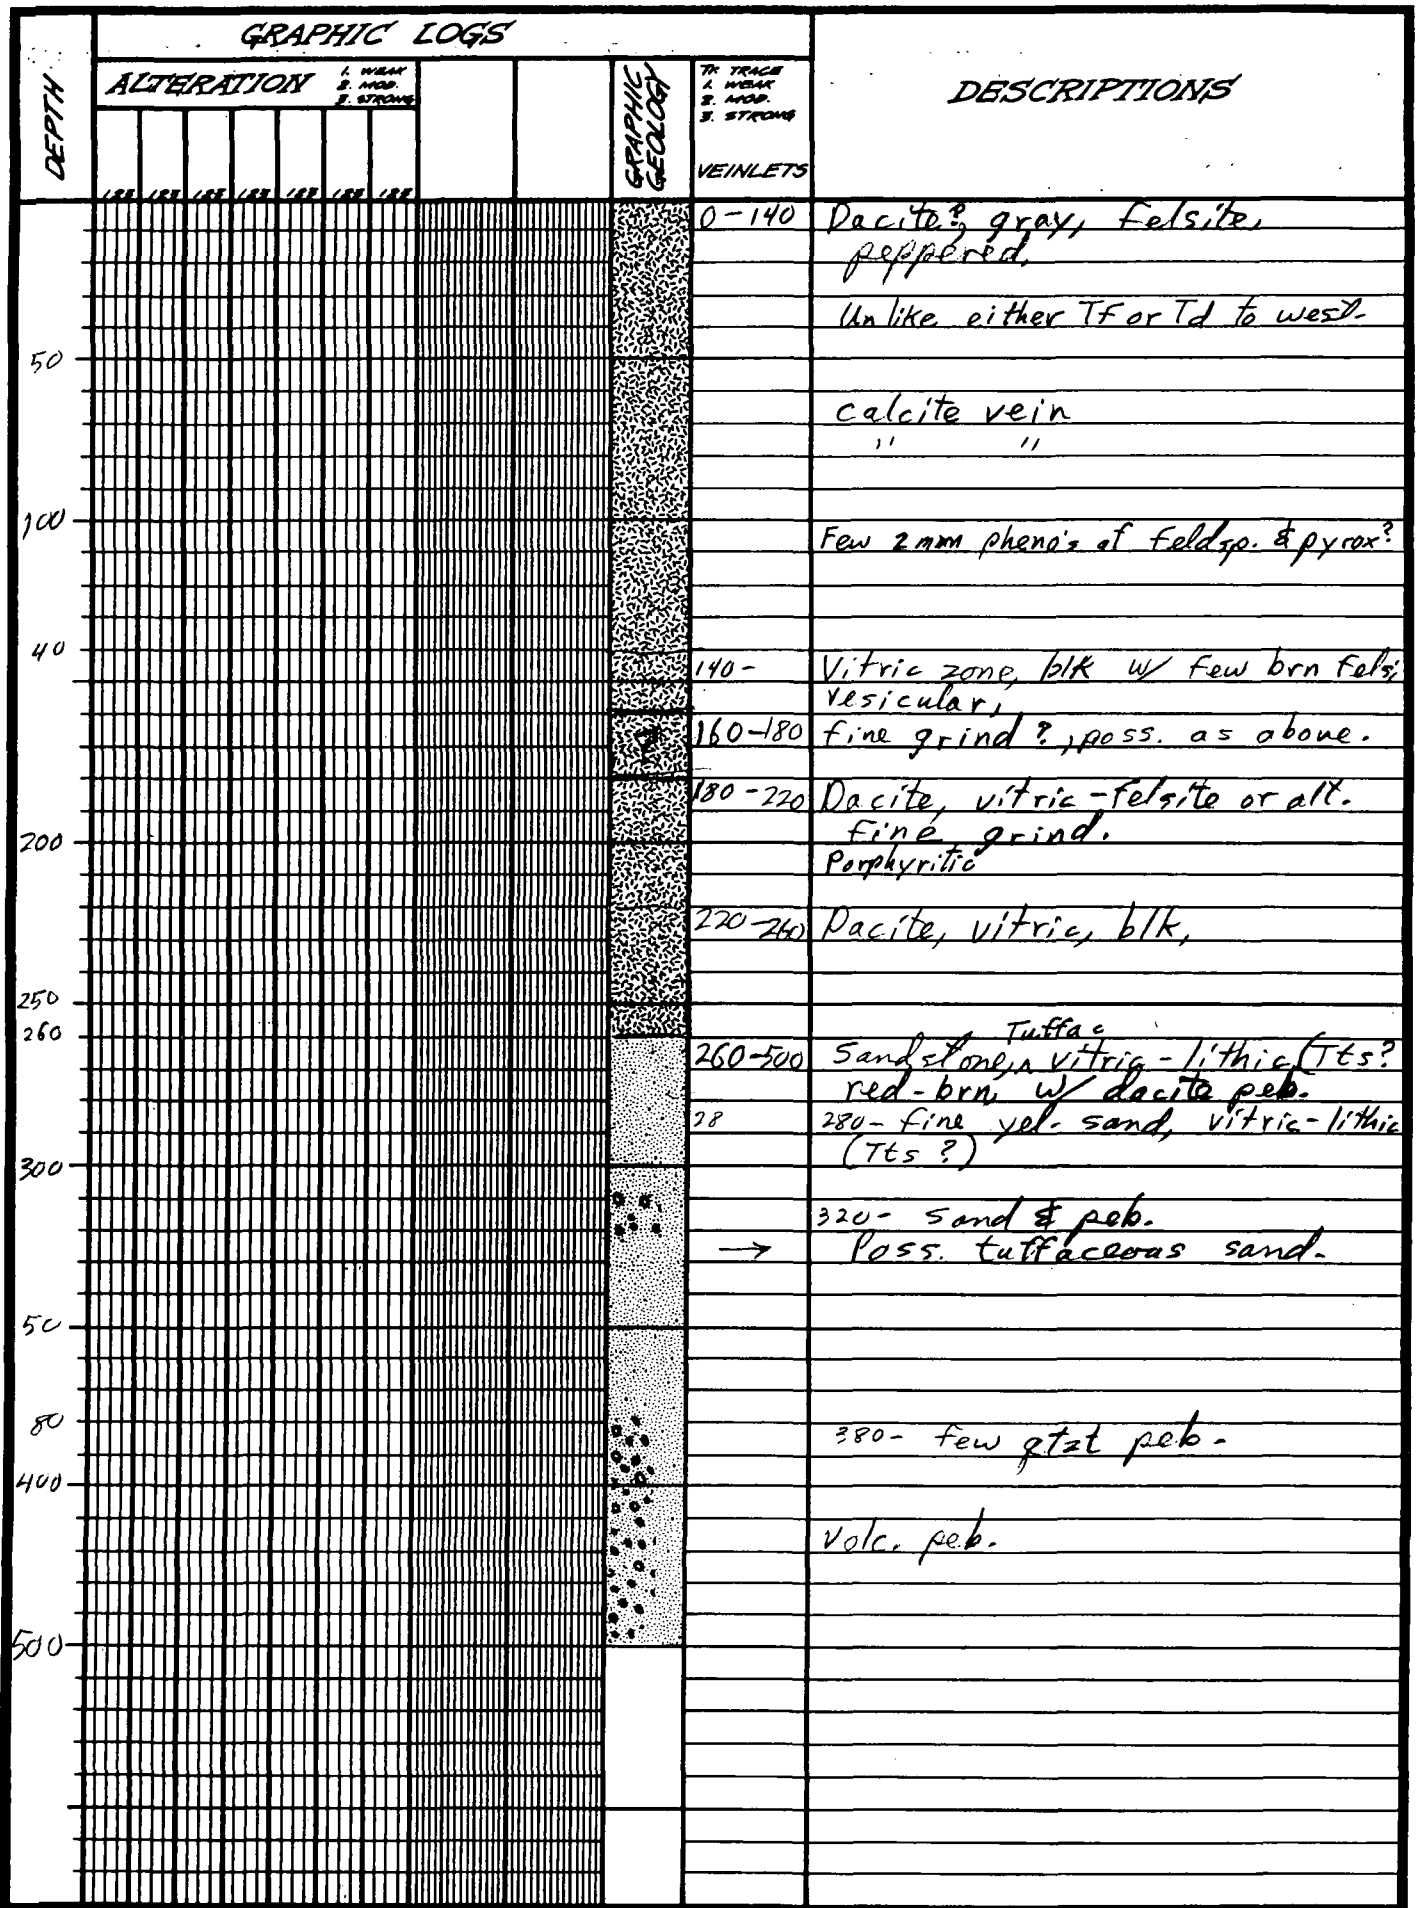 GRAPHIC LOGS
DEPTH
ALTERATION
1. WEAK
2. MOD.
3. STRONG
GRAPHIC
GEOLOGY
TR TRACE
1. WEAK
2. MOD.
3. STRONG
VEINLETS
DESCRIPTIONS
123 123 123 123 123 123 123
0-140 Dacite?, gray, Felsite,
peppered.
Unlike either Tf or Td to west.
50
calcite vein
" "
100
Few 2mm pheno's of feldsp. & pyrox?
40
140- Vitric zone, blk w/ few brn fels;
vesicular,
160-180 fine grind?, poss. as above.
180-220 Dacite, vitric-felsite or alt.
fine grind.
200
Porphyritic
220-260 Dacite, vitric, blk,
250
260
Tuffac
260-500 Sandstone, ^ vitric-lithic (Tts?
red-brn, w/ dacite peb.
28 280- fine yel. sand, vitric-lithic
(Tts?)
300
320- sand & peb.
→ Poss. tuffaceous sand.
50
80
380- few qtzt peb.
400
Volc. peb.
500